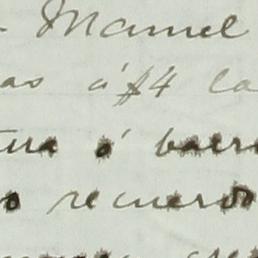 Manuel
as á $4 la
tura ó barr
o recuerdo